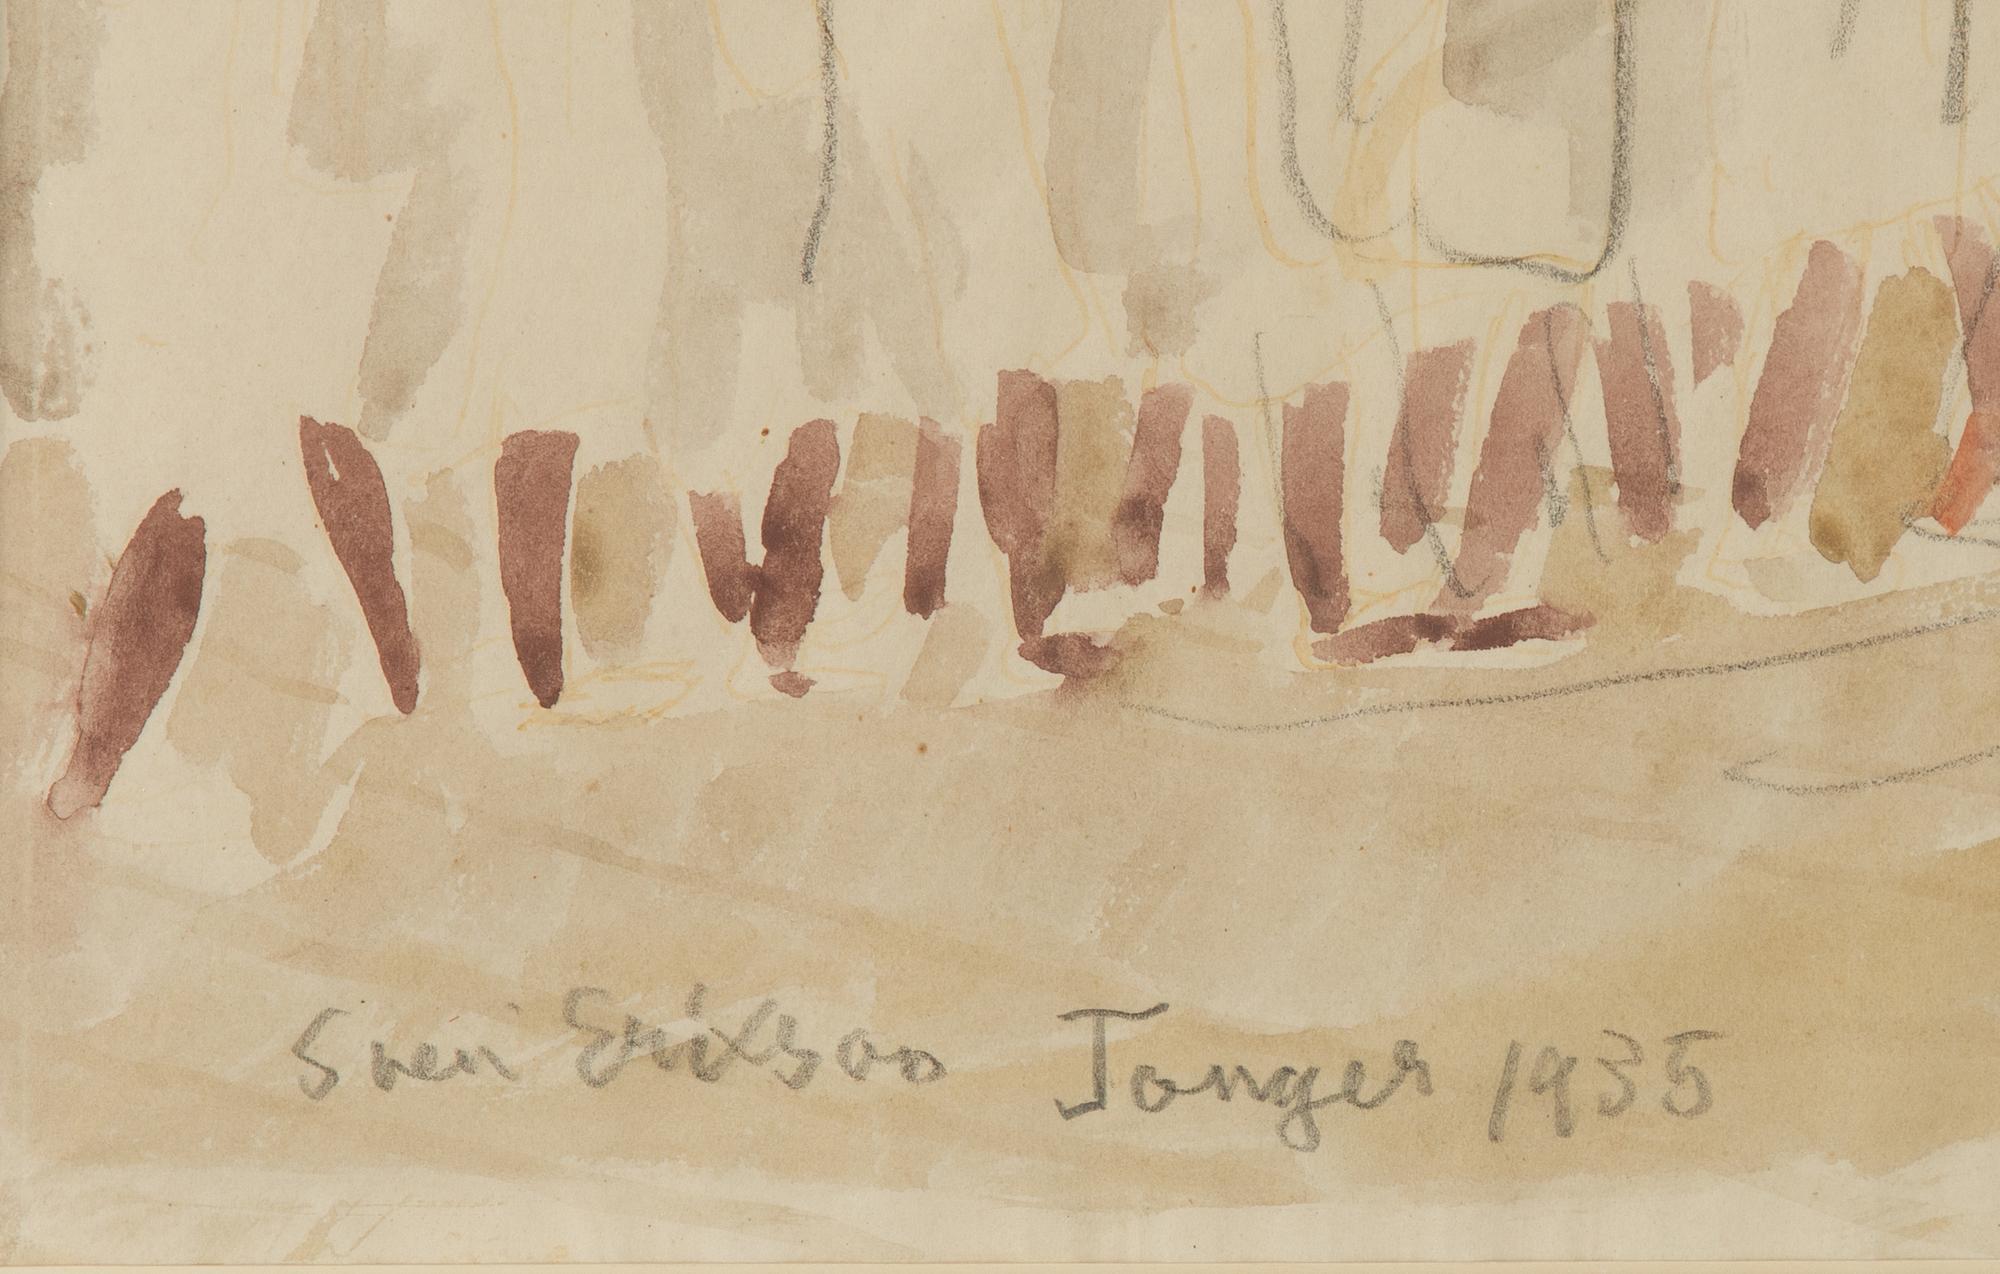 Sven Erixson Tanger 1935